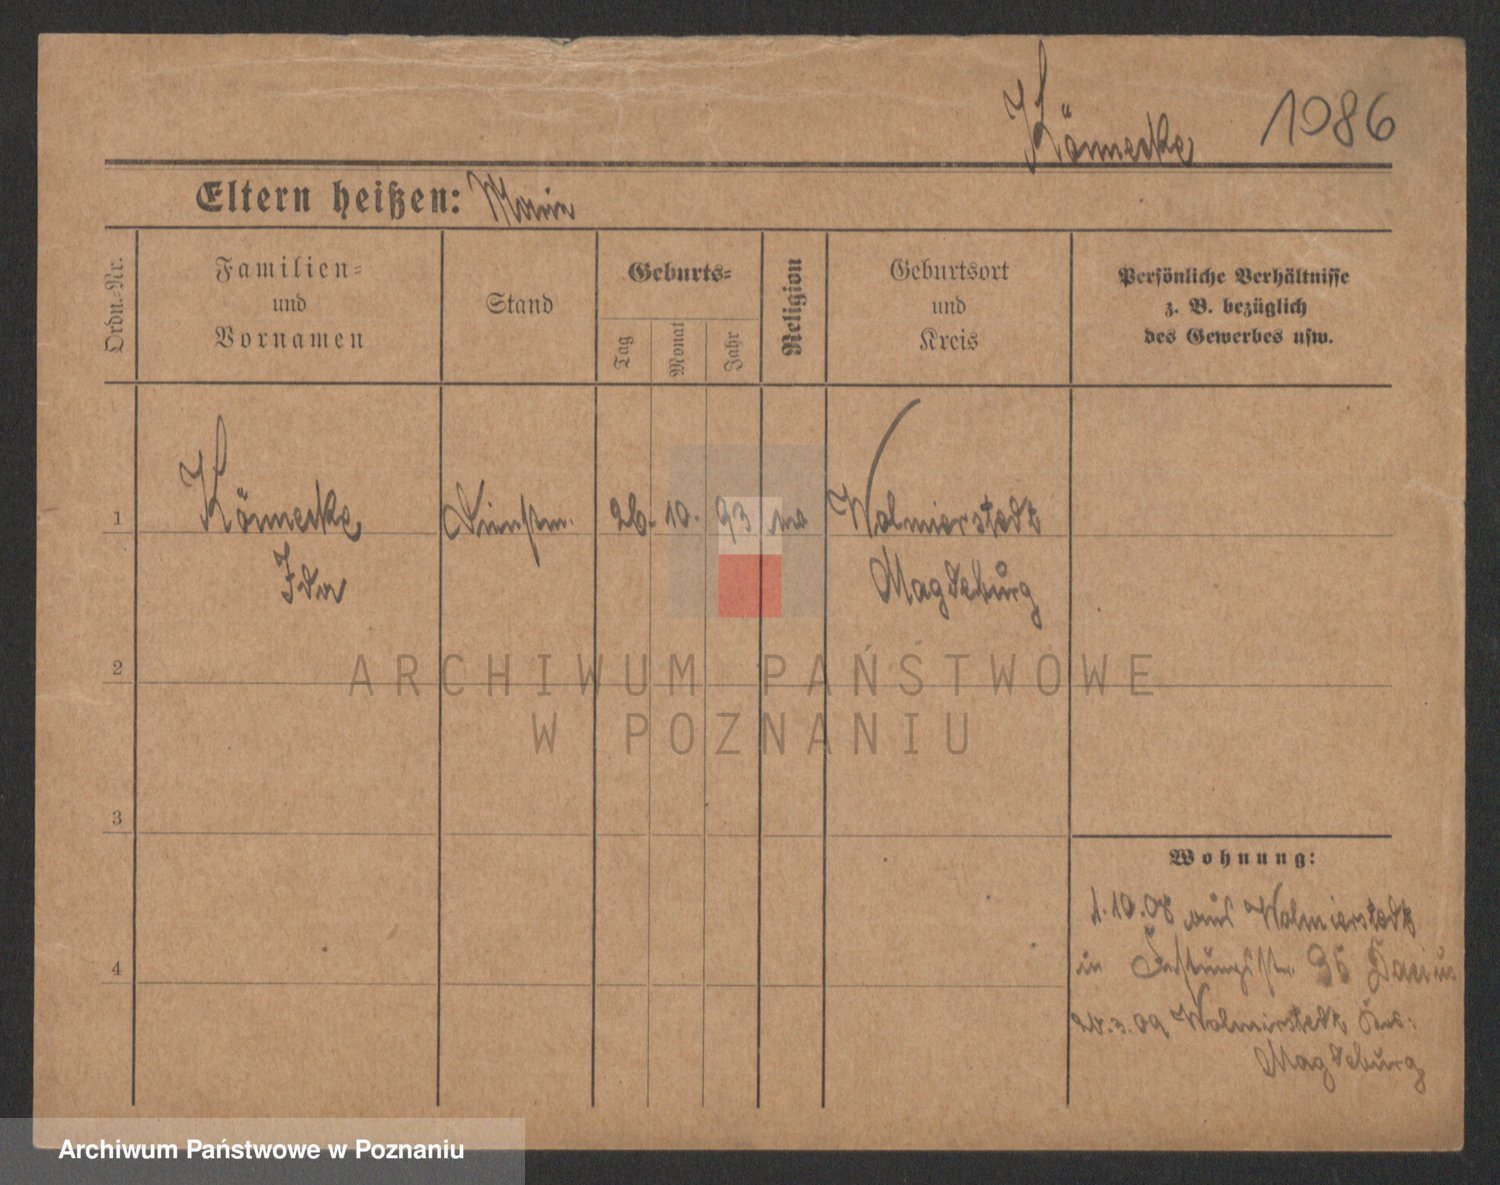 Könnecke 1086
Eltern heißen:
Ordn.-Nr.
Familien-
und
Vornamen
Stand
Geburts-
Tag
Monat
Jahr
Religion
Geburtsort
und
Kreis
Persönliche Verhältnisse
z. B. bezüglich
des Gewerbes usw.
1
Könnecke
Ida
Dienstm.
26. 10. 93
Wolmirstedt
Magdeburg
2
3
4
Wohnung:
1.10.08 aus Wolmirstedt
in Festungsstr.
3.09 Wolmirstedt
Magdeburg
ARCHIWUM PAŃSTWOWE
W POZNANIU
Archiwum Państwowe w Poznaniu